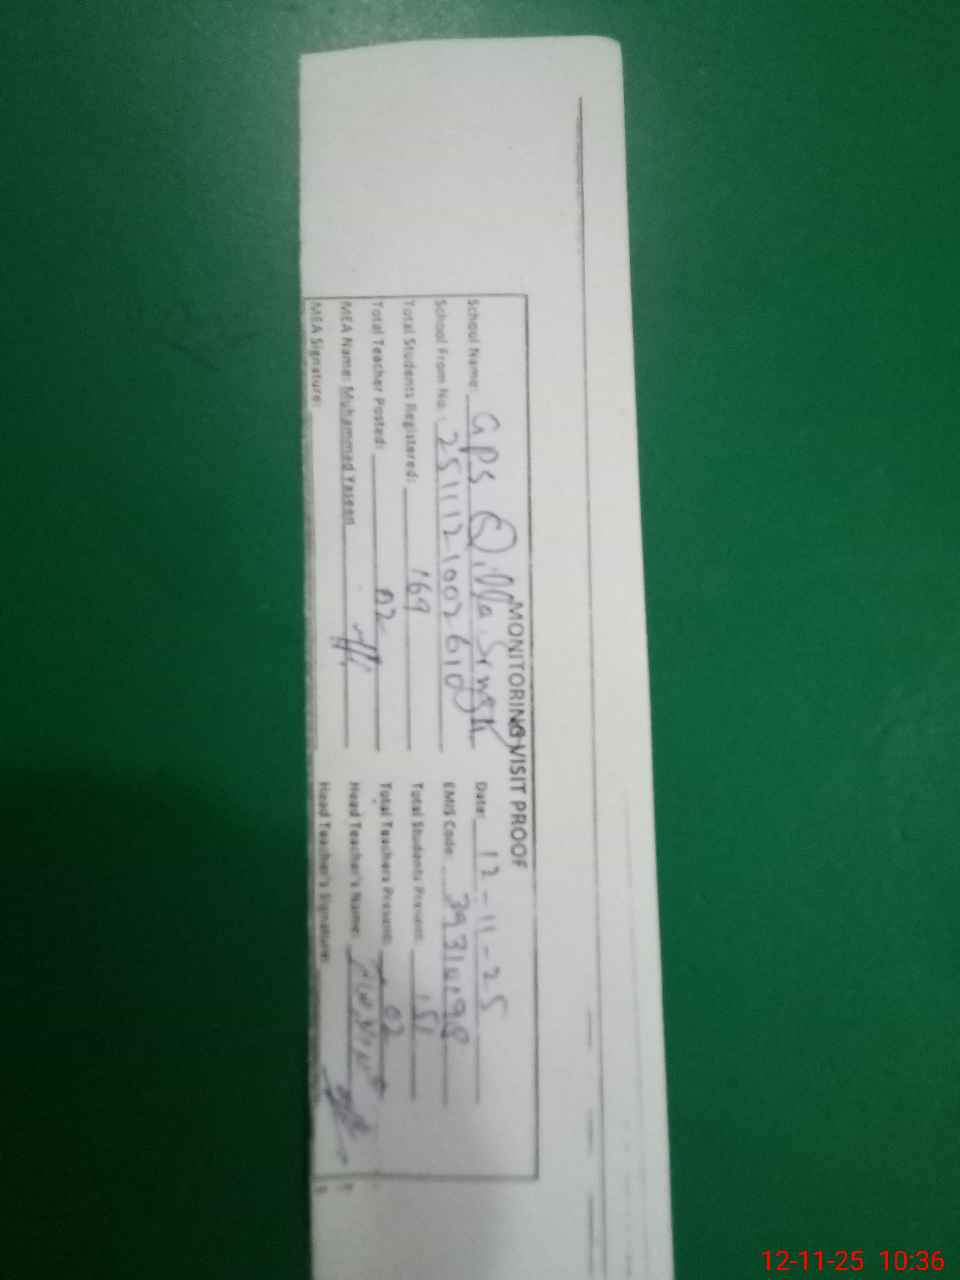 MONITORING VISIT PROOF
School Name: GPS Qilla
Date: 12-11-25
School From No.: 2511121002610
EMIS Code:
Total Students Registered: 169
Total Students Present: 151
Total Teacher Posted: 02
Total Teachers Present: 02
MEA Name: Muhammad Yaseen
Head Teacher's Name:
MEA Signature:
Head Teacher's Signature:
12-11-25 10:36